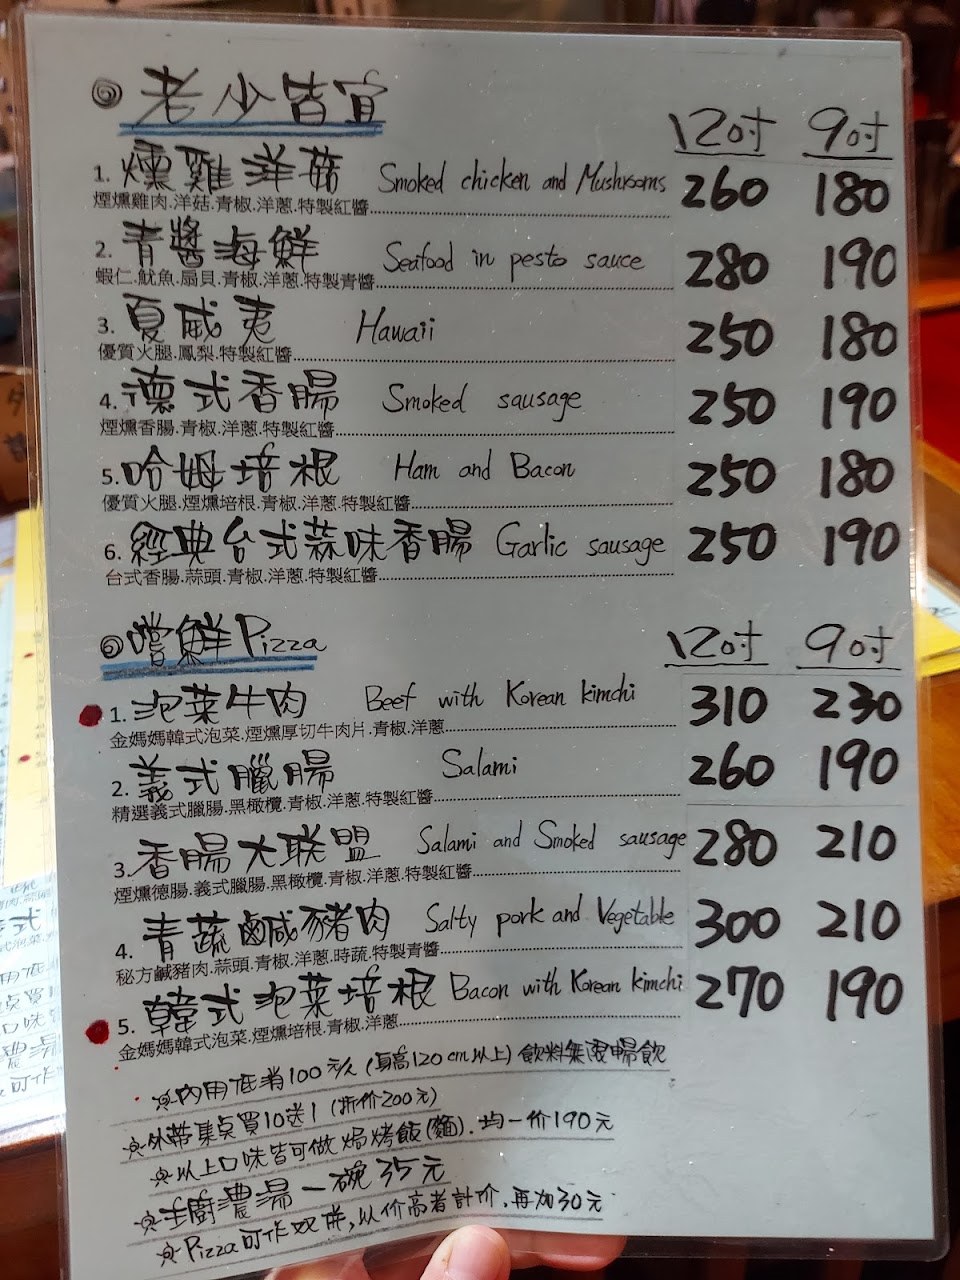 老少皆宜 12吋 9吋
1. 燻雞洋菇 Smoked chicken and Mushrooms 260 180
煙燻雞肉.洋菇.青椒.洋蔥.特製紅醬
2. 青醬海鮮 Seafood in pesto sauce 280 190
蝦仁.魷魚.扇貝.青椒.洋蔥.特製青醬
3. 夏威夷 Hawaii 250 180
優質火腿.鳳梨.特製紅醬
4. 德式香腸 Smoked sausage 250 190
煙燻香腸.青椒.洋蔥.特製紅醬
5. 哈姆培根 Ham and Bacon 250 180
優質火腿.煙燻培根.青椒.洋蔥.特製紅醬
6. 經典台式蒜味香腸 Garlic sausage 250 190
台式香腸.蒜頭.青椒.洋蔥.特製紅醬
嚐鮮Pizza 12吋 9吋
1. 泡菜牛肉 Beef with Korean kimchi 310 230
金媽媽韓式泡菜.煙燻厚切牛肉片.青椒.洋蔥
2. 義式臘腸 Salami 260 190
精選義式臘腸.黑橄欖.青椒.洋蔥.特製紅醬
3. 香腸大联盟 Salami and Smoked sausage 280 210
煙燻德腸.義式臘腸.黑橄欖.青椒.洋蔥.特製紅醬
4. 青蔬鹹豬肉 Salty pork and Vegetable 300 210
秘方鹹豬肉.蒜頭.青椒.洋蔥.時蔬.特製青醬
5. 韓式泡菜培根 Bacon with Korean kimchi 270 190
金媽媽韓式泡菜.煙燻培根.青椒.洋蔥
※內用低消100元/人(身高120cm以上)飲料無限暢飲
※外帶集點買10送1(折价200元)
※以上口味皆可做焗烤飯(麵).均一价190元
※主廚濃湯一碗35元
※Pizza可作双併,以价高者計价,再加30元